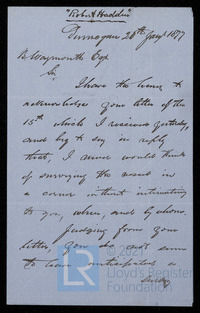 "Robert Haddin"
28th Jany 1877
B. Waymouth Esq
Sir
I have the honor to
acknowledge your letter of the
15th which I received yesterday,
and beg to say in reply
that, I never would think
of surveying the vessel in
a corner without intimating
to you, when, and by whom.
Judging from your
letter you do not seem
to have anticipated a
© 2021
LR
Lloyd's Register
Foundation